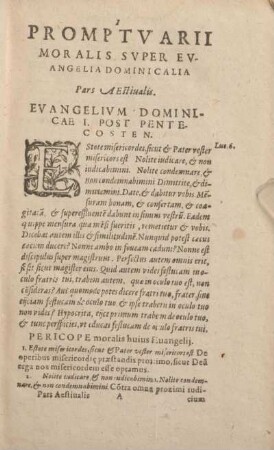 1
PROMPTVARII
MORALIS SVPER EV-
ANGELIA DOMINICALIA
Pars AEstiualis.
EVANGELIVM DOMINI-
CAE I. POST PENTE-
COSTEN.
EStote misericordes, sicut & Pater vester Luc. 6.
misericors est Nolite iudicare, & non
iudicabimini. Nolite condemnare &
non condemnabimini Dimittite, & di-
mittemini. Date, & dabitur vobis Men
suram bonam, & confertam, & coa-
gitatã, & supereffluentẽ dabunt in sinum vestrũ. Eadem
quippe mensura qua mẽsi fueritis, remetietur & vobis.
Dicebat autem illis & similitudinẽ. Nunquid potest cæcus
cæcum ducere? Nonne ambo in foueam cadunt? Nonne est
discipulus super magistrum. Perfectus autem omnis erit,
si sit sicut magister eius. Quid autem vides festucam in o-
culo fratris tui, trabem autem, quæ in oculo tuo est, non
cõsideras? Aut quomodo potes dicere fratri tuo, frater, sine
eijciam festucam de oculo tuo & ipse trabem in oculo tuo
non vides? Hypocrita, eijce primum trabem de oculo tuo,
& tunc perspicies, vt educas festucam de oculo fratris tui.
PERICOPE moralis huius Euangelij.
1. Estote misericordes, sicut & Pater vester misericors est De
operibus misericordiæ præstandis proximo, sicut Deus
erga nos misericordem esse optamus.
2. Nolite iudicare & non iudicabimini. Nolite condemna-
re, & non condemnabimini. Cõtra omne proximi iudi-
Pars Aestiualis A cium